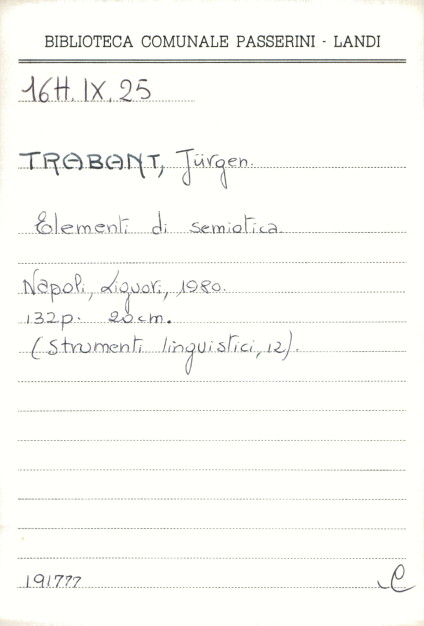 BIBLIOTECA COMUNALE PASSERINI - LANDI
16H.IX.25
TRABANT, Jürgen.
Elementi di semiotica.
Napoli, Liguori, 1980.
132p. 20cm.
(Strumenti linguistici, 12).
191777
C